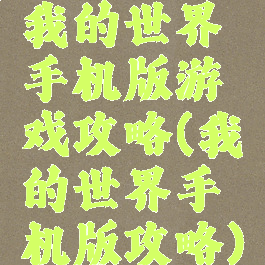 我的世界
手机版游
戏攻略(我
的世界手
机版攻略)